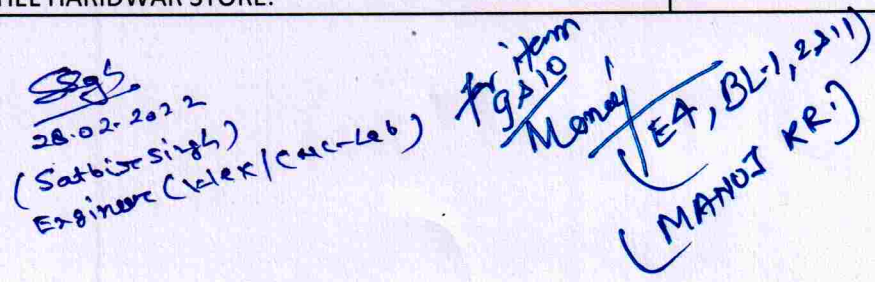 HEEP, BHEL HARIDWAR STORE.
28.02.2022
(Satbir Singh)
Engineer (WEX/CNC-Lab)
for item
9 & 10
Manoj
(E4, BL-1, 2811)
(MANOJ KR.)